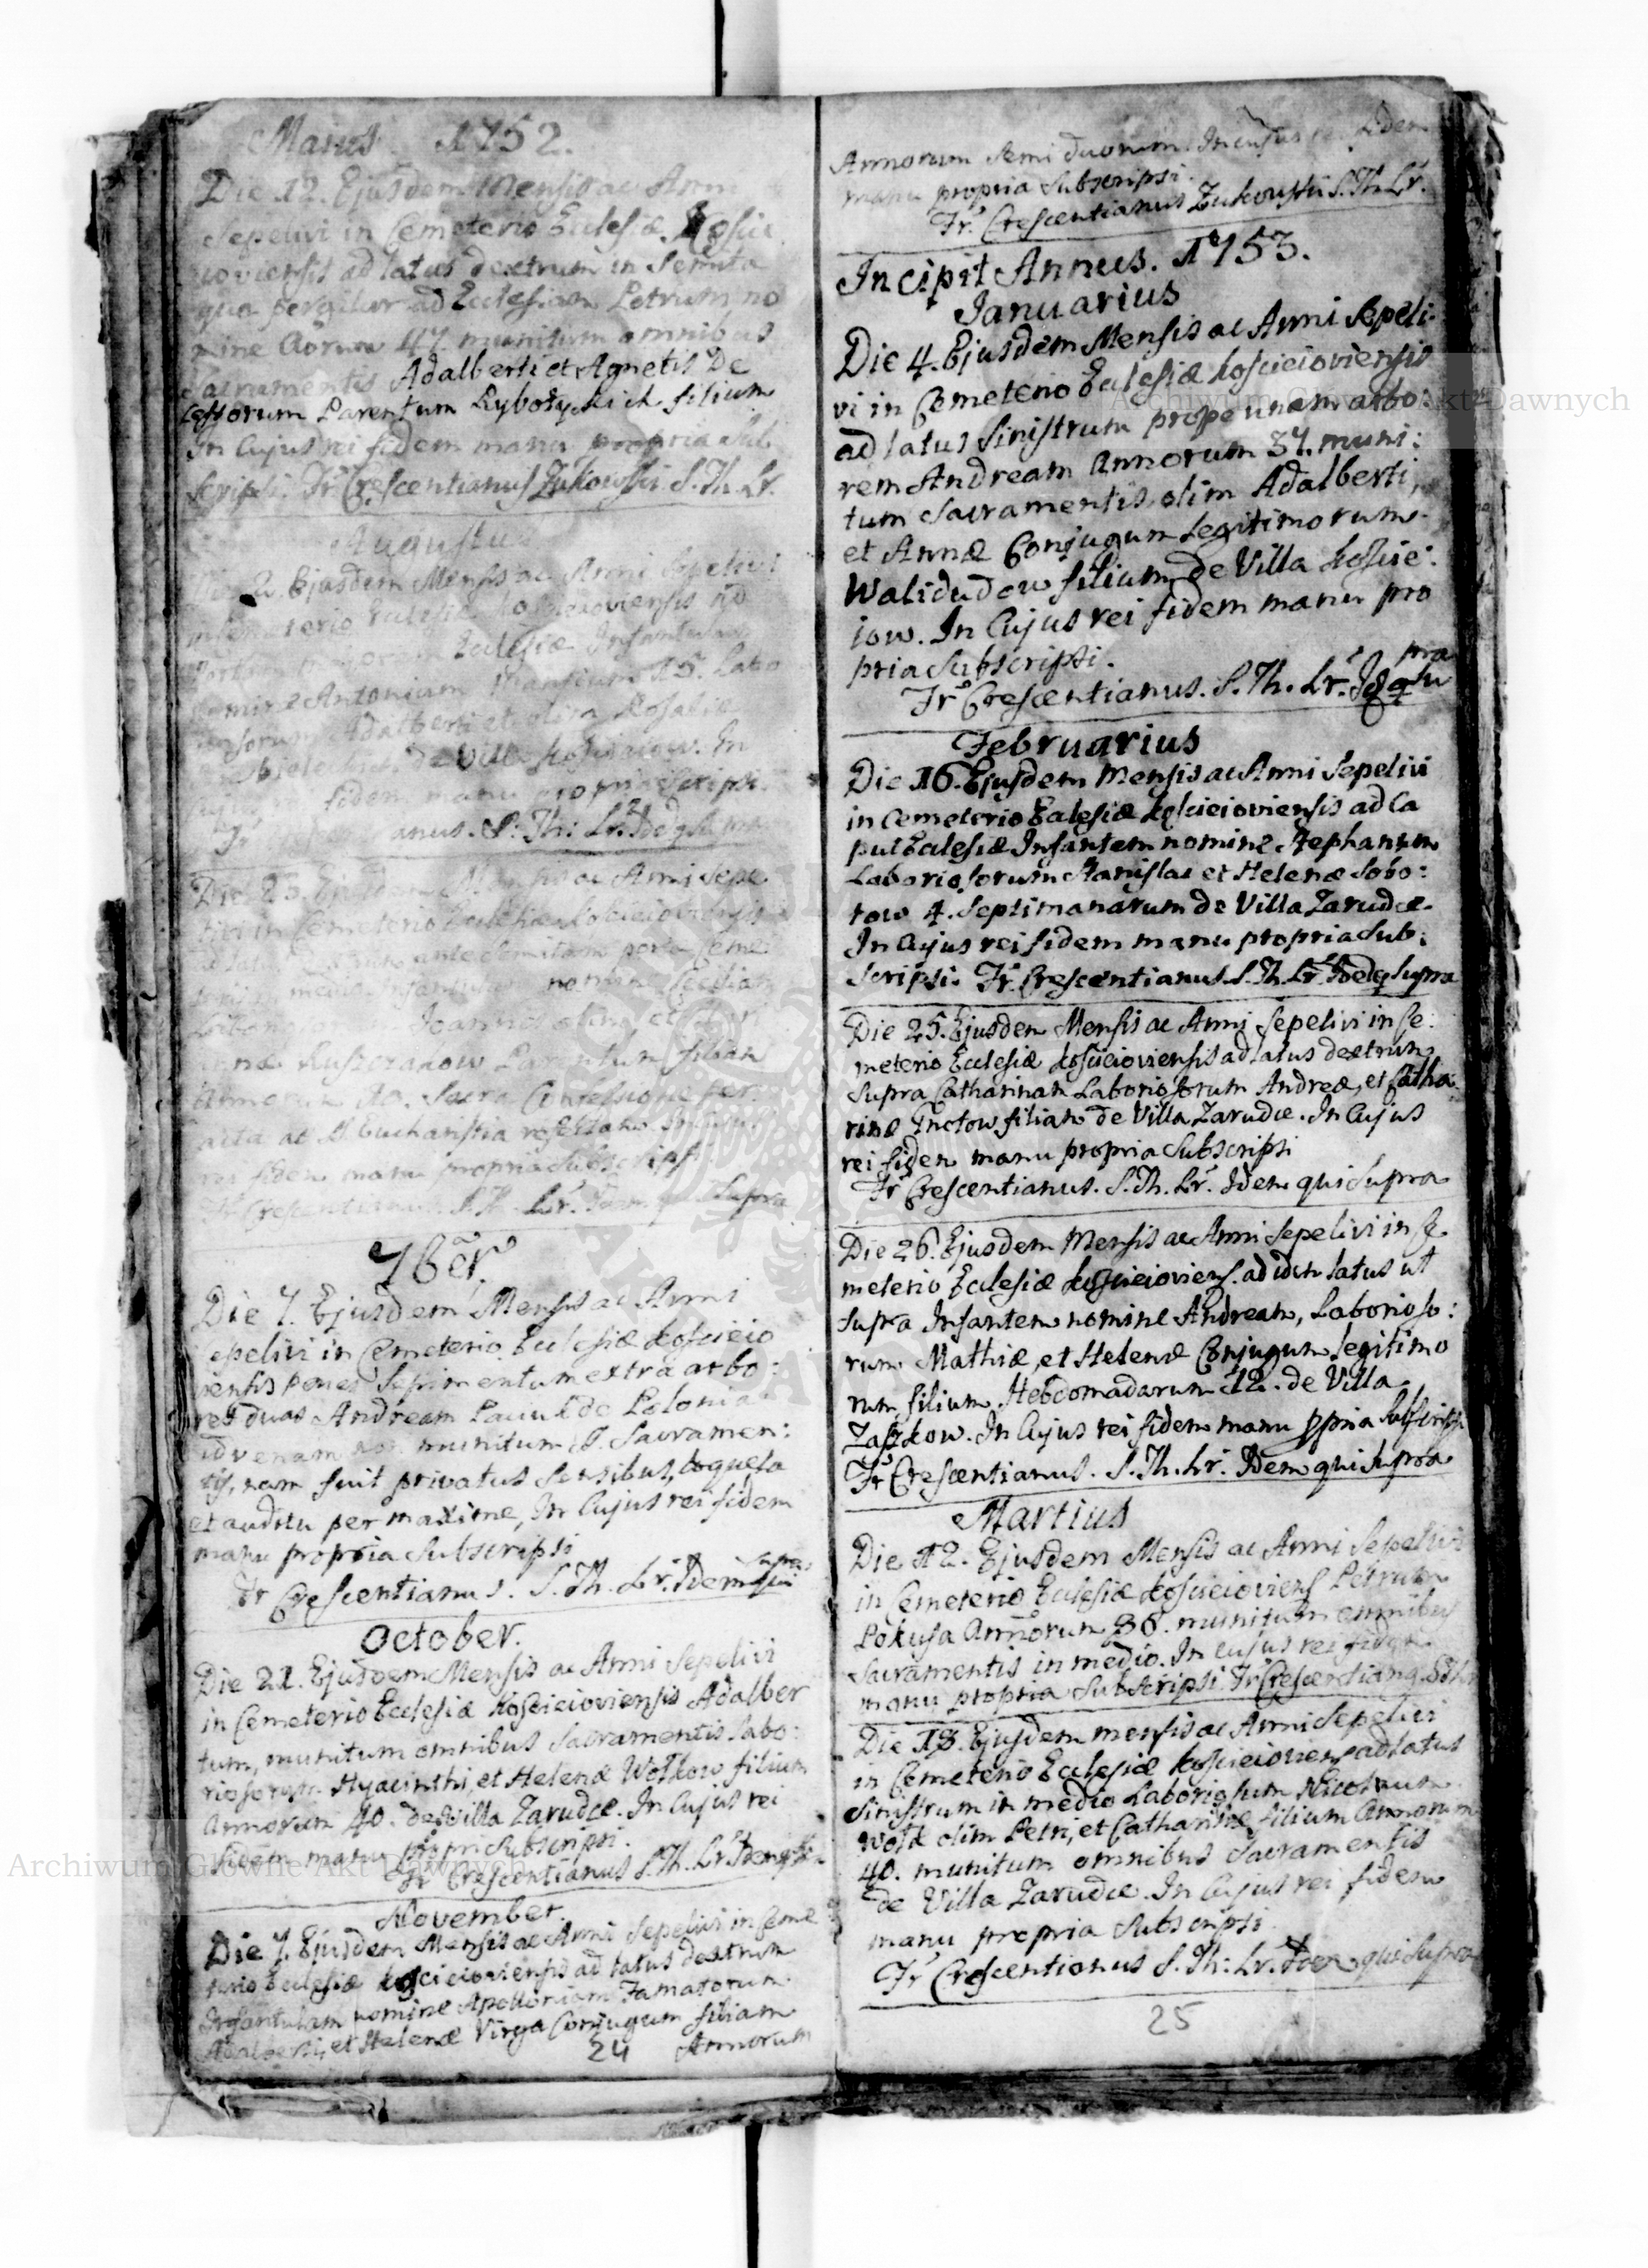 Maius 1752.
Die 12. Ejusdem Mensis ac Anni
Sepelivi in Cemeterio Ecclesiæ Koście
ioviensis ad latus dextrum in Semita
qua pergitur ad Ecclesiam Petrum no
mine Aõrum 47 munitum omnibus
Sacramentis Adalberti et Agnetis De
cessorum Parentum Rybotyckich filium
In Cujus rei fidem manu propria Sub
scripsi. Fr. Crescentianus Żukowski S. Th. Lr.
Augustus
Die 2. Ejusdem Mensis ac Anni Sepelivi
in Cemeterio Ecclesiæ Kościeioviensis ad
Ecclesiæ Infantulum
Antonium Mensium 15. Labo
Adalberti et olim Rosaliæ
de Villa In
fidem manu propria Scripsi.
Fr anus. S. Th: Lr. Idem qui supra
Die 23. Ejusdem Mensis ac Anni Sepe
livi in Cemeterio Ecclesiæ Kościeioviensis
ante Semitam porta Ceme
medio Infantulam nomine Cæciliam
Joannis olim, et
Ruszczakow Parentum filiam
Annorum 10. Sacra Confessione per
acta ac S. Eucharistia refectam In Cujus
rei fidem manu propria Subscripsi
Fr Crescentianus S. Th. Lr. Idem qui Supra
7bẽr.
Die 7. Ejusdem Mensis ac Anni
epelivi in Cemeterio Ecclesiæ Kościeio
viensis penes Sepimentum extra arbo:
res duas Andream Pauluk de Polonia
advenam non munitum S. Sacramen:
tis, nam fuit privatus Sensibus, loquela
et auditu per maxime, In Cujus rei fidem
manu propria Subscripsi
Fr Crescentianus. S. Th. Lr. Idem qui Supra
October.
Die 21. Ejusdem Mensis ac Anni Sepelivi
in Cemeterio Ecclesiæ Kościeioviensis Adalber
tum, munitum omnibus Sacramentis Labo:
riosorum Hyacinthi, et Helenæ Wołkow filium
Annorum 40. de Villa Zarudce. In Cujus rei
fidem manu propri Subscripsi.
Fr Crescentianus S. Th. Lr. Idem
November.
Die 7. Ejusdem Mensis ac Anni Sepelivi in Ceme
terio Ecclesiæ Kościeioviensis ad latus dextrum
Infantulam nomine Apolloniam Famatorum
Adalberti, et Helenæ Virga Conjugum filiam
24 Annorum
Annorum Semi duorum. In Cujus rei fidem
manu propria Subscripsi.
Fr. Crescentianus Żukowski S. Th. Lr.
Incipit Annus. 1753.
Ianuarius
Die 4. Ejusdem Mensis ac Anni Sepeli:
vi in Cemeterio Ecclesiæ Kościeioviensis
ad latus Sinistrum prope unam arbo:
rem Andream Annorum 37. muni:
tum Sacramentis, olim Adalberti,
et Annæ Conjugum Legitimorum
Walidudow filium de Villa Koście:
iow. In Cujus rei fidem manu pro
pria Subscripsi.
Fr Crescentianus. S. Th. Lr. Id q su
pra
Februarius
Die 16. Ejusdem Mensis ac Anni Sepelivi
in Cemeterio Ecclesiæ Kościeioviensis ad Ca
put Ecclesiæ Infantem nomine Stephanum
Laboriosorum Stanislai et Helenæ Sobo:
tow 4. Septimanarum de Villa Zarudce.
In Cujus rei fidem manu propria Sub:
scripsi. Fr. Crescentianus S. Th. Lr. Idem q Supra
Die 25. Ejusdem Mensis ac Anni Sepelivi in Ce:
meterio Ecclesiæ Kościeioviensis ad latus dextrum
Supra Catharinam Laboriosorum Andreæ, et Catha
rinæ filiam de Villa Zarudce. In Cujus
rei fidem manu propria Subscripsi
Fr Crescentianus. S. Th. Lr. Idem qui Supra
Die 26. Ejusdem Mensis ac Anni Sepelivi in Ce
meterio Ecclesiæ Kościeioviens. ad idem latus ut
Supra Infantem nomine Andream, Laborioso:
rum Mathiæ, et Helenæ Conjugum legitimo
rum filium Hebdomadarum 12. de Villa
Zaszkow. In Cujus rei fidem manu ppria Subscripsi
Fr Crescentianus. S. Th. Lr. Idem qui Supra
Martius
Die 12. Ejusdem Mensis ac Anni Sepelivi
in Cemeterio Ecclesiæ Kościeioviens Petrum
Pokusa Annorum 36. munitum omnibus
Sacramentis in medio. In cujus rei fidem
manu propria Subscripsi Fr Crescentianq. S Th
Die 18. Ejusdem mensis ac Anni Sepelivi
in Cemeterio Ecclesiæ Kościeiowiens ad latus
Sinistrum in medio Laboriosum Nicolaum
Wołk olim Petri, et Catharinæ filium Annorum
40. munitum omnibus Sacramentis
de Villa Zarudce. In Cujus rei fidem
manu propria Subscripsi
Fr Crescentianus S. Th: Lr. Idem qui Supra
25
Archiwum Główne Akt Dawnych
Archiwum Główne Akt Dawnych